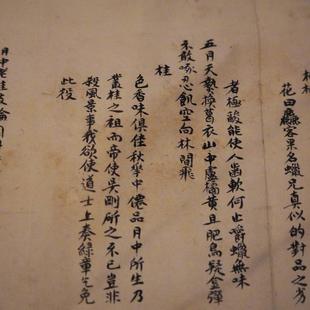 花田客果名蠟兄真似的對品之劣
者極酸能使人齒軟何止嚼蠟無味
五月天熱換葛衣山中盧橘黃且肥鳥疑金彈
不敢啄忍飢空向林間飛
桂
色香味俱佳秋中僊品月中所生乃
叢桂之祖而帝使吳剛斫之不已豈非
殺風景事我欲使道士上奏綠章乞免
此役
月中老桂